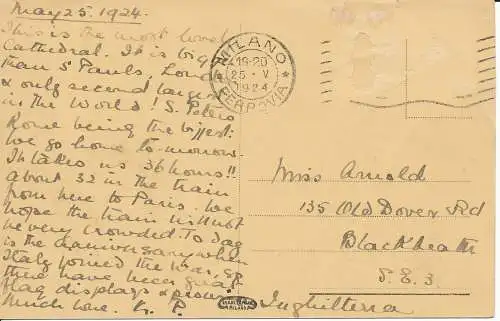 May 25. 1924.
This is the most lovely
Cathedral. It is bigger
than St Pauls, London
& only second largest
in the World! S. Peters
Rome being the biggest.
We go home to-morrow.
It takes us 36 hours!!
about 32 in the train
from here to Paris. We
hope the train will not
be very crowded. To day
is the anniversary when
Italy joined the War, so
there have been great
flag displays &
Much love. K. P.
MILANO
19-20
25 · V
1924
FERROVIA
Miss Arnold
135 Old Dover Rd
Blackheath
S.E.3.
Inghilterra